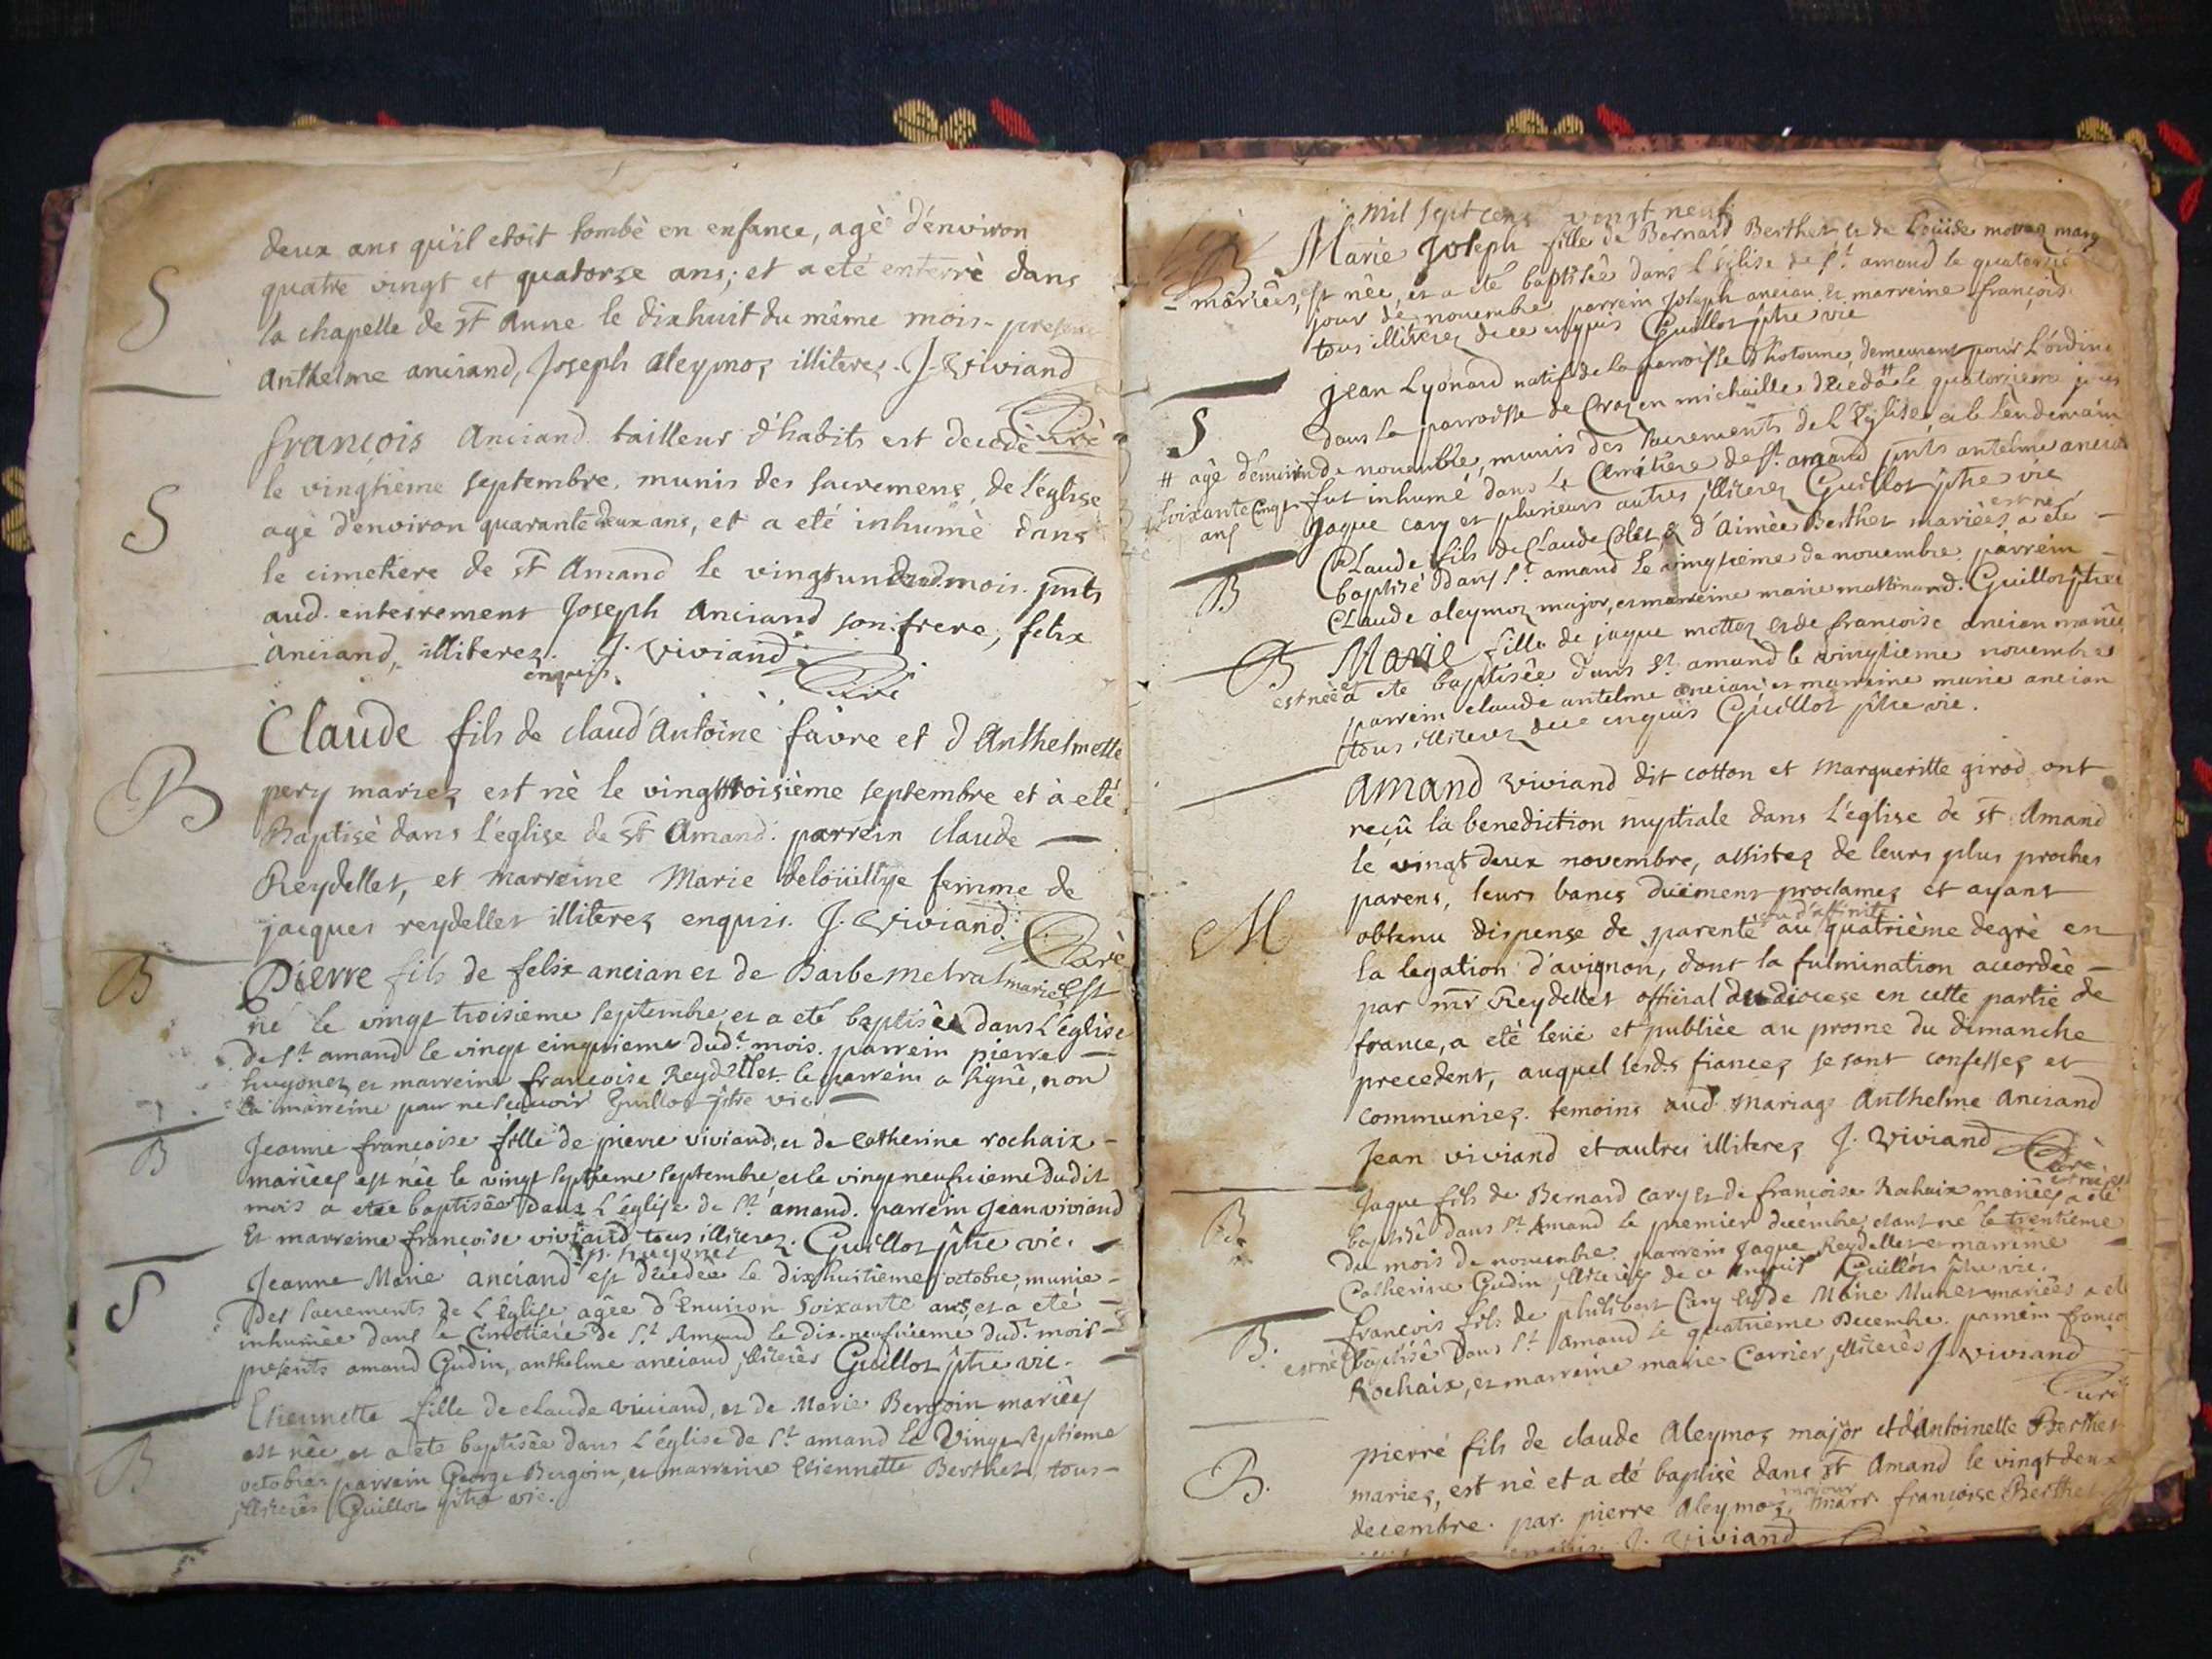 deux ans qu'il etoit tombè en enfance, agè d'environ
quatre vingt et quatorze ans; et a eté enterrè dans
S
la chapelle de st Anne le dixhuit du même mois. presens
Anthelme anciand, Joseph aleymoz illiterez. J. Viviand
Curè
françois Anciand tailleur d'habits est decedè
le vingtième septembre, munis des sacremens de l'église
S
agé d'environ quarante deux ans, et a eté inhumè dans
le cimetiere de st Amand le vingt un dud mois. pnts
aud. enterrement Joseph Anciand son frere, felix
Anciand, illiterez. J. Viviand
enquis.
Curé
Claude fils de claud'Antoine favre et d'Anthelmette
B
pery mariez est nè le vingttroisième septembre et à eté
Baptisè dans l'eglise de st Amand. parrein claude
Reydellet, et marreine Marie delouillye femme de
jacques reydellet illiterez enquis. J. Viviand
Curè
B
Pierre fils de felix ancian et de Barbe metral mariés est
né le vingt troisieme septembre, et a eté baptisé dans L'église
de St amand le vingt cinquieme dudt mois. parrein pierre
hugonet et marreine francoise Reydellet. le parrein a signé, non
la marreine pour ne sçavoir Guillot ptre vic
B
Jeanne françoise fille de pierre viviand, et de Catherine rochaix
mariées est née le vingt septieme septembre, et le vingt neufvieme dudit
mois a etee baptisée dans L'église de St amand. parrein Jean viviand
Et marreine françoise viviand tous illiterez. Guillot ptre vic.
p. hugonet
Jeanne Marie anciand est decedée le dixhuitieme octobre, munie
S
Des sacrements de L'Eglise agée d'Environ soixante ans, et a eté
inhumée dans le Cimetiere de St Amand le dix-neufvieme dudt mois
presents amand Gudin, anthelme anciand illiterés Guillot ptre vic.
Etiennette fille de claude viviand, et de Marie Bergoin mariées
B
est née et a ete baptisée dans L'église de St amand le Vingt septieme
octobre, parrein George Bergoin, et marreine Etiennette Berthet, tous
illiterés Guillot ptre vic.
mil sept cens vingt neuf
B
Marie Joseph fille de Bernard Berthet et de Louise
mariées, est née, et a eté baptisée dans L'église de St amand le quatorzie
jour de novembre parrein Joseph ancian et marreine françoise
tous illiterez de ce enquis Guillot ptre vic
Jean Lyonard natif de la parroisse d'hotonne, demeurant pour L'ordine
S
dans la parroisse de Craz en michaille decedà # le quatorzieme jour
# agé d'environ
de novembre, munis des sacrements de L'Eglise, et le lendemain
soixante Cinq
fut inhumé dans le Cimetiere de St. amand pnts antelme ancian
ans
Jaque cary et plusieurs autres illiterez Guillot ptre vic
est né
B
Claude fils de Claude Colet, et d'Aimée Berthet mariées, a eté
baptisé dans St. amand le vingtieme de novembre parrein
Claude aleymoz major, et marreine marie mathinand. Guillot ptre
B
Marie fille de jaque mottaz et de francoise ancian mariées
est née et
a ete baptisée dans St. amand le vingtieme novembre
parrein claude antelme ancian, et marreine marie ancian
tous illiterez de ce enquis Guillot ptre vic.
Amand viviand dit cotton et Margueritte girod ont
reçû la benediction nuptiale dans l'église de st Amand
le vingt deux novembre, assistez de leurs plus proches
parens, leurs bancs düement proclamez et ayant
ou d'affinité
M
obtenu dispense de parenté au quatrième degrè en
la legation d'avignon, dont la fulmination accordée
par mr Reydellet official du diocese en cette partie de
france, a eté leüe et publièe au prosne du dimanche
precedent, auquel lesds fiancez se sont confessez et
communiez. temoins aud Mariage Anthelme Anciand
Jean viviand et autres illiterez J. Viviand
Curè
est né, et
Jaque fils de Bernard cary et de françoise Rochaix mariées a eté
B
baptisé dans St Amand le premier decembre, etant né le trentieme
du mois de novembre. parrein Jaque Reydellet et marreine
Catherine Gudin, illiterés de ce enquis Guillot ptre vic.
B.
francois fils de philibert Cary Et de Marie Munet mariées a eté
est né et
baptisé dans St Amand le quatrieme Decembre. parrein franço
Rochaix, et marreine marie Carrier, illiterés J. Viviand
Curé
pierre fils de claude Aleymoz major et d'Antoinette Berthet
B.
mariez, est nè et a eté baptisè dans st Amand le vingt deux
decembre. par. pierre Aleymoz, marr. françoise Berthet
enquis. J. Viviand